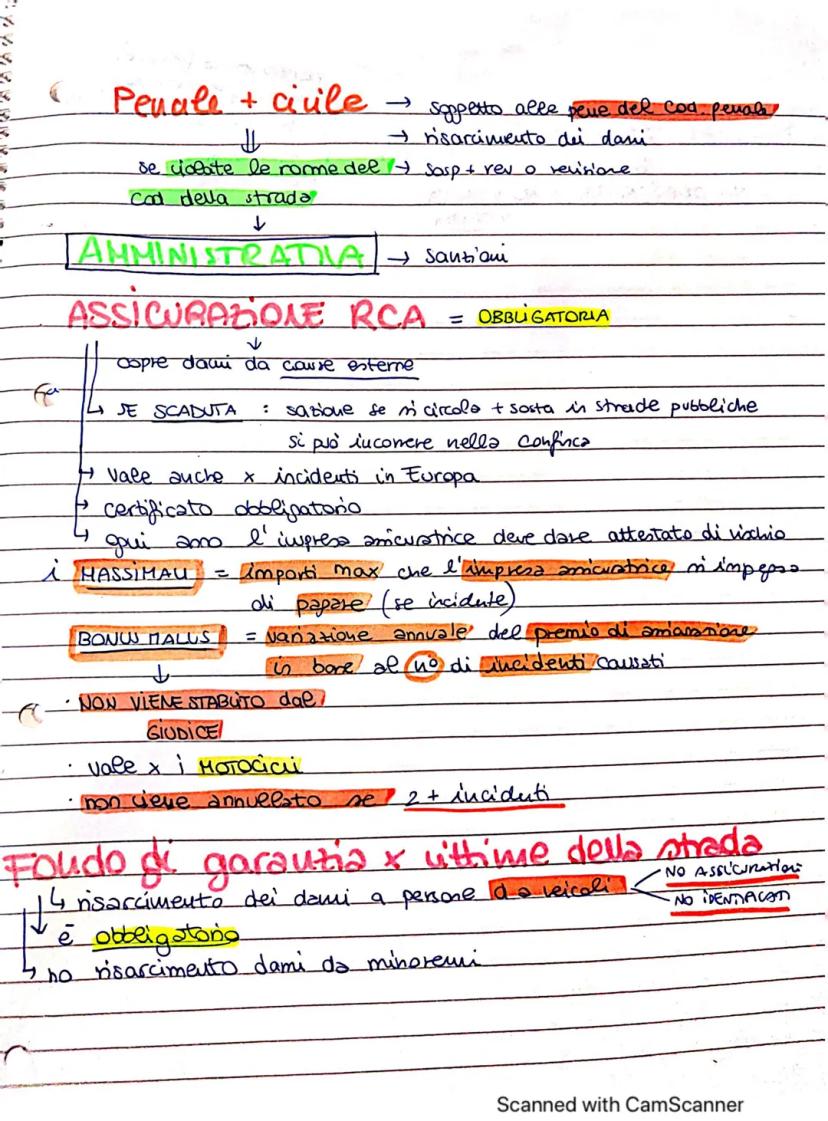 Penale + civile → soggetto alle pene del cod. penale
→ risarcimento dei danni
se violate le norme del → sosp + rev o revisione
cod della strada
AMMINISTRATIVA → sanzioni
ASSICURAZIONE RCA = OBBLIGATORIA
copre danni da cause esterne
↳ SE SCADUTA : sazione se si circola + sosta in strade pubbliche
si può incorrere nella confisca
→ vale anche x incidenti in Europa
→ certificato obbligatorio
↳ ogni anno l'impresa assicuratrice deve dare attestato di rischio
i MASSIMALI = importi max che l'impresa assicuratrice si impegna
di pagare (se incidente)
BONUS MALUS = variazione annuale del premio di assicurazione
in base al n° di incidenti causati
· NON VIENE STABILITO dal
GIUDICE
· vale x i MOTOCICLI
· non viene annullato se 2 + incidenti
Fondo di garanzia x vittime della strada
↳ risarcimento dei danni a persone da veicoli
NO ASSICURATI
NO IDENTIFICATI
è obbligatorio
↳ no risarcimento danni da minorenni
Scanned with CamScanner